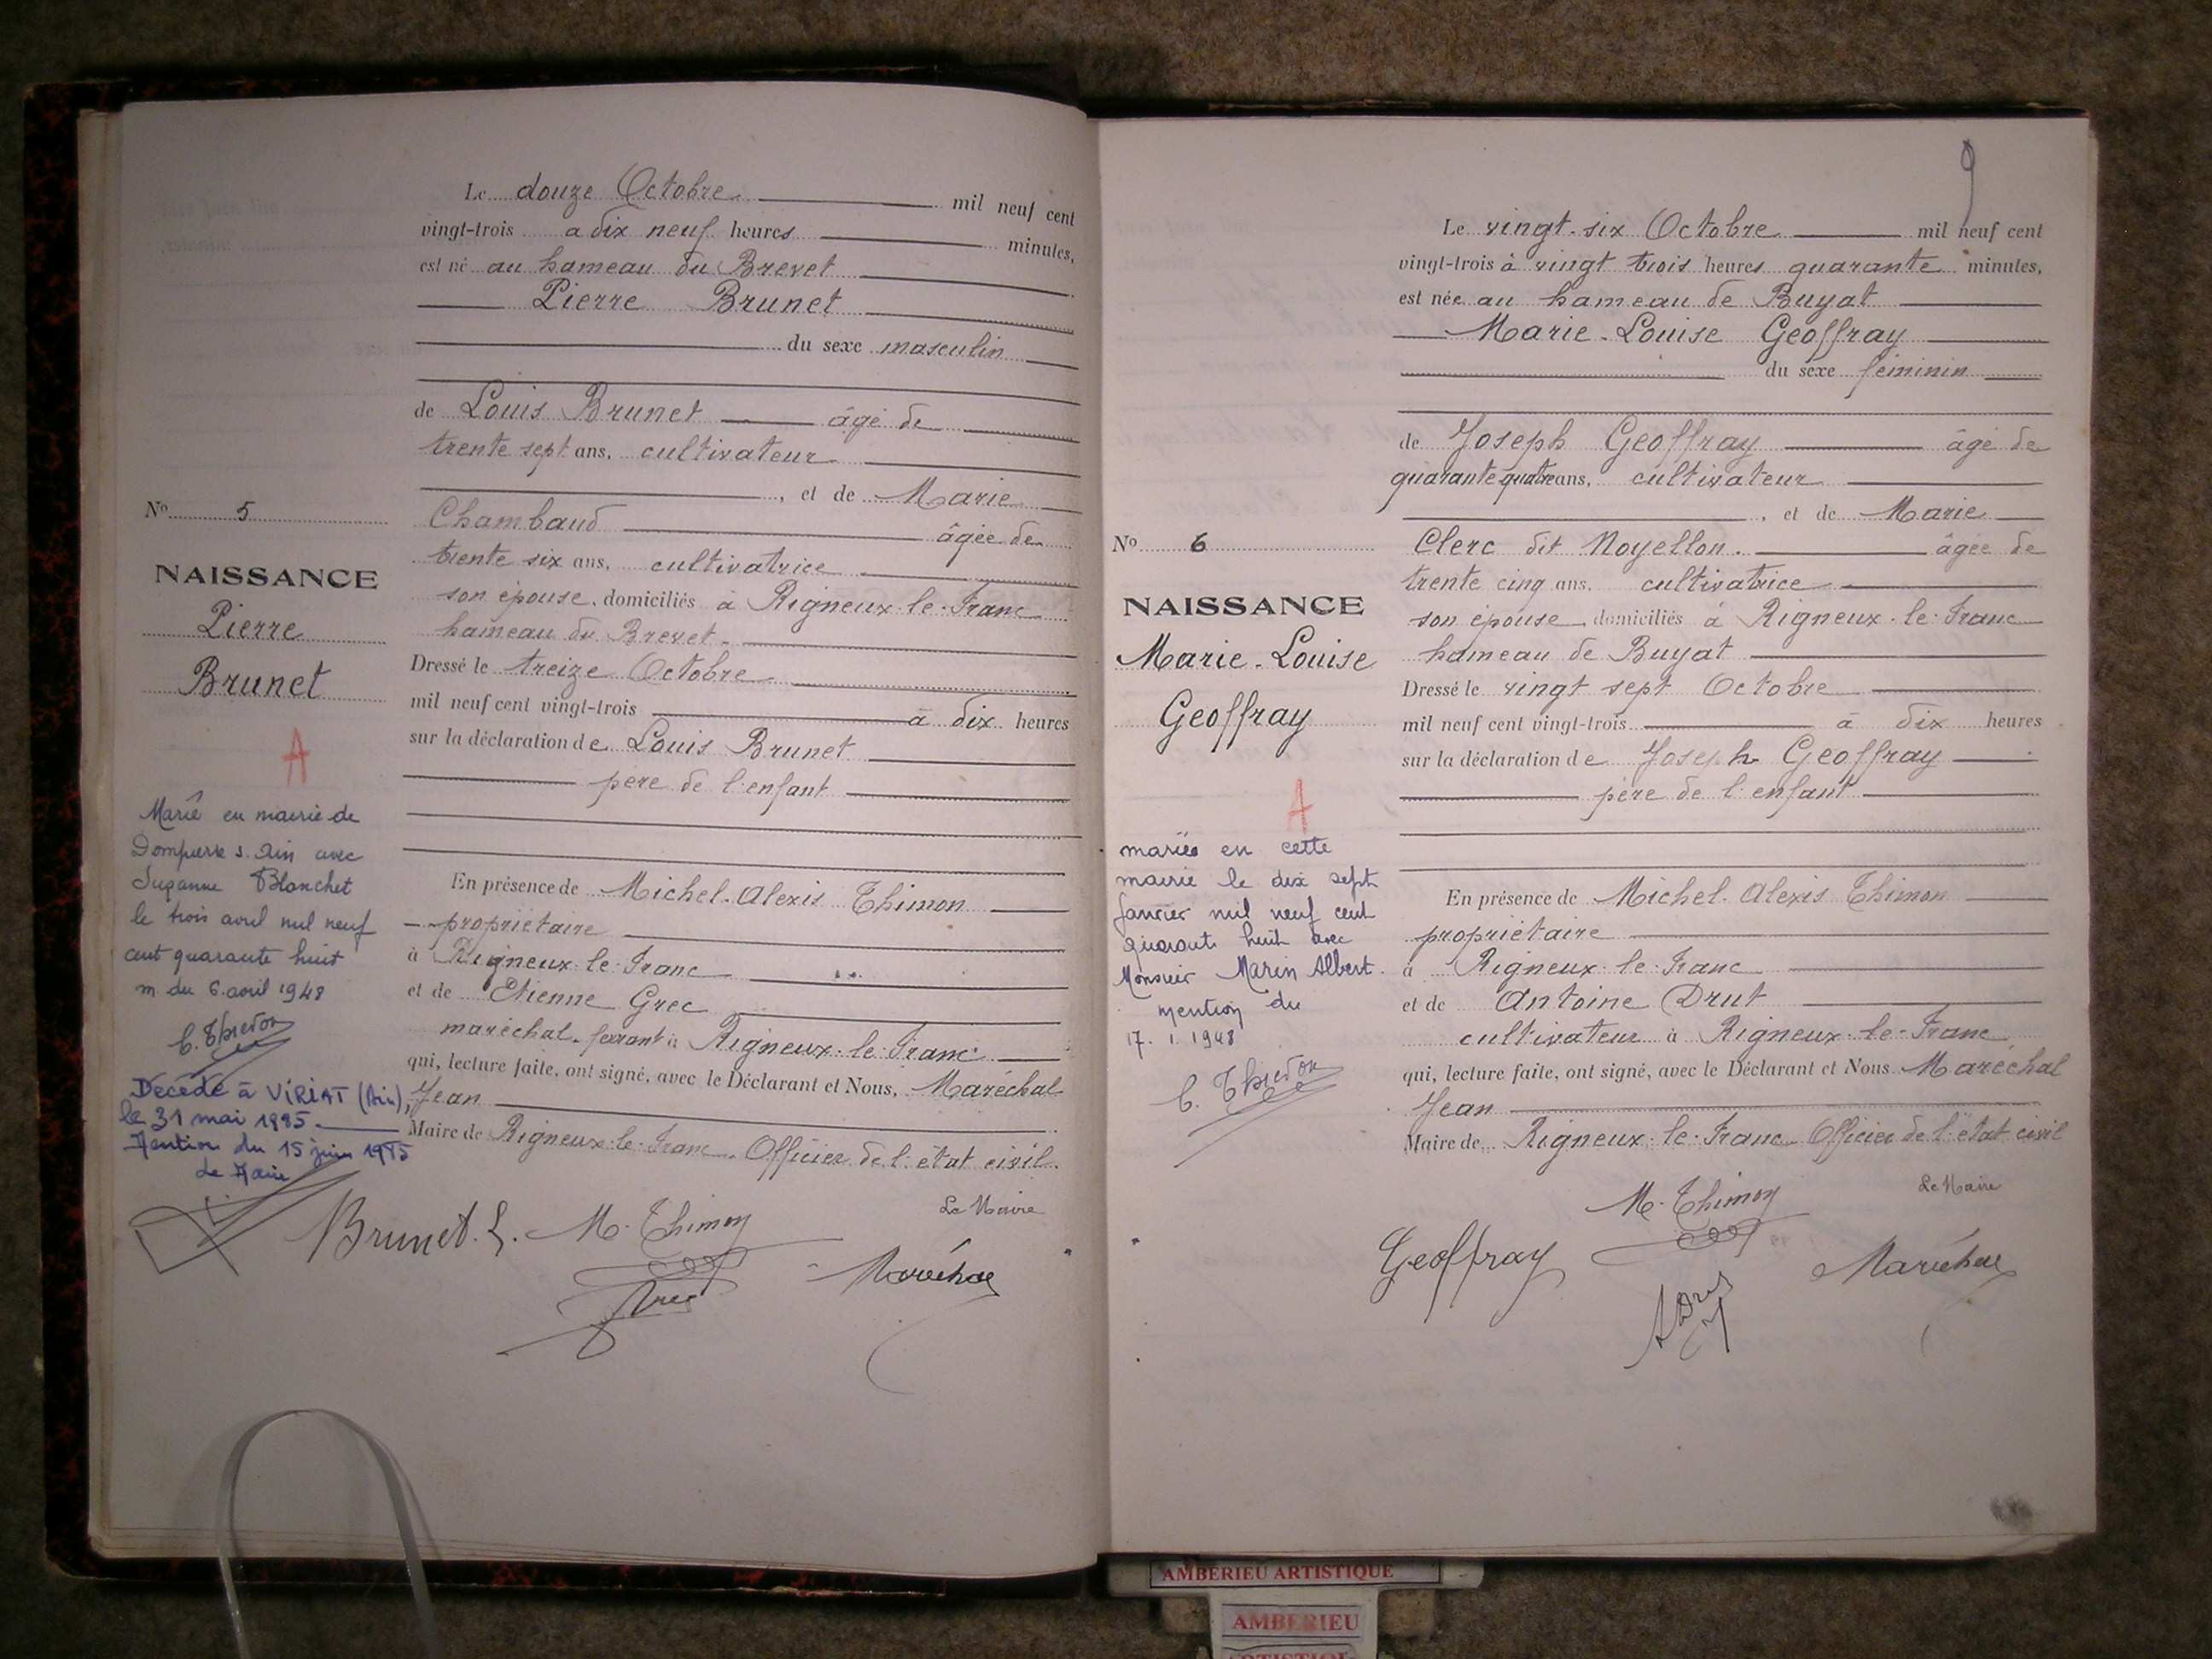 Le douze Octobre mil neuf cent
vingt-trois à dix neuf heures minutes,
est né au hameau du Brevet
Pierre Brunet
du sexe masculin
de Louis Brunet âgé de
trente sept ans, cultivateur
, et de Marie
Chambaud âgée de
trente six ans, cultivatrice
son épouse, domiciliés à Rigneux-le-Franc
hameau du Brevet
Dressé le treize Octobre
mil neuf cent vingt-trois à dix heures
sur la déclaration de Louis Brunet
père de l'enfant
En présence de Michel-Alexis Thimon
propriétaire
à Rigneux-le-Franc
et de Etienne Grec
maréchal-ferrant à Rigneux-le-Franc
qui, lecture faite, ont signé, avec le Déclarant et Nous, Maréchal
Jean
Maire de Rigneux-le-Franc, Officier de l'état civil.
Le Maire
Brunet. L. M. Thimon
Grec
Maréchal
No 5
NAISSANCE
Pierre
Brunet
A
Marié en mairie de
Dompierre s. Ain avec
Suzanne Blanchet
le trois avril mil neuf
cent quarante huit
m du 6 avril 1948
Décédé à VIRIAT (Ain),
le 31 mai 1995
Mention du 15 juin 1995
Le Maire
9
Le vingt-six Octobre mil neuf cent
vingt-trois à vingt trois heures quarante minutes,
est née au hameau de Buyat
Marie-Louise Geoffray
du sexe féminin
de Joseph Geoffray âgé de
quarante quatre ans, cultivateur
, et de Marie
Clerc dit Noyellon. âgée de
trente cinq ans. cultivatrice
son épouse, domiciliés à Rigneux-le-Franc
hameau de Buyat
Dressé le vingt sept Octobre
mil neuf cent vingt-trois à dix heures
sur la déclaration de Joseph Geoffray
père de l'enfant
En présence de Michel-Alexis Thimon
propriétaire
à Rigneux-le-Franc
et de Antoine Drut
cultivateur à Rigneux-le-Franc
qui, lecture faite, ont signé, avec le Déclarant et Nous Maréchal
Jean
Maire de Rigneux-le-Franc Officier de l'état civil
Le Maire
M. Thimon
Geoffray
Maréchal
No 6
NAISSANCE
Marie-Louise
Geoffray
A
mariée en cette
mairie le dix sept
janvier mil neuf cent
quarante huit avec
Monsieur Marin Albert.
mention du
17. 1. 1948
AMBERIEU ARTISTIQUE
AMBERIEU
ARTISTIQUE